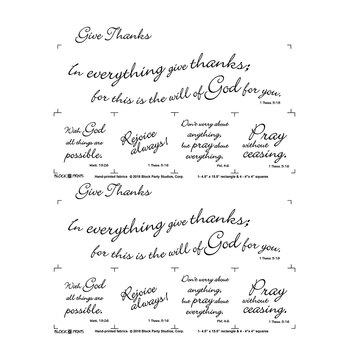 Give Thanks
In everything give thanks;
for this is the will of God for you.
1 Thess. 5:18
With God
all things are
possible.
Matt. 19:26
Rejoice
always!
1 Thess. 5:16
Don't worry about
anything,
but pray about
everything.
Phil. 4:6
Pray
without
ceasing.
1 Thess. 5:17
BLOCK PRINTS
Hand-printed fabrics © 2018 Block Party Studios, Corp.
1- 4.5" x 15.5" rectangle & 4 - 4"x 4" squares
Give Thanks
In everything give thanks;
for this is the will of God for you.
1 Thess. 5:18
With God
all things are
possible.
Matt. 19:26
Rejoice
always!
1 Thess. 5:16
Don't worry about
anything,
but pray about
everything.
Phil. 4:6
Pray
without
ceasing.
1 Thess. 5:17
BLOCK PRINTS
Hand-printed fabrics © 2018 Block Party Studios, Corp.
1- 4.5" x 15.5" rectangle & 4 - 4"x 4" squares